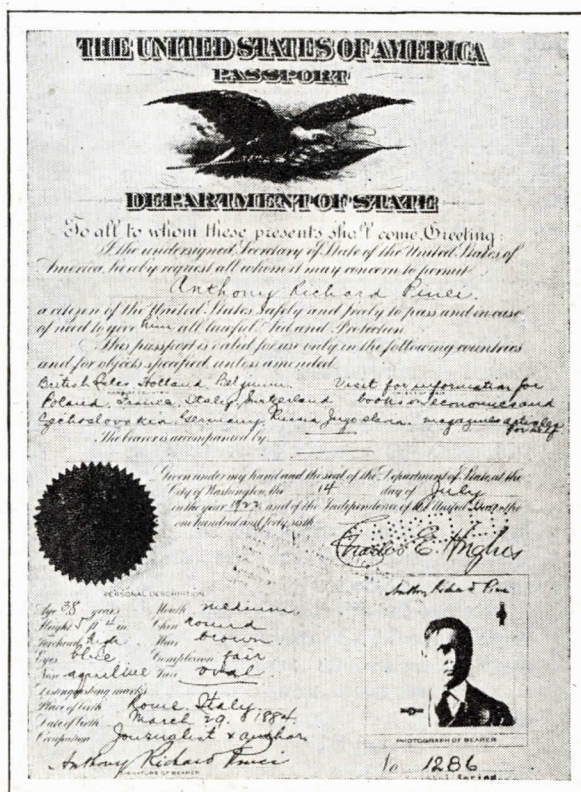 THE UNITED STATES OF AMERICA
PASSPORT
DEPARTMENT OF STATE
To all to whom these presents shall come, Greeting:
I the undersigned, Secretary of State of the United States of
America, hereby request all whom it may concern to permit
Anthony Richard Pinci.
a citizen of the United States safely and freely to pass and in case
of need to give him all lawful Aid and Protection
This passport is valid for use only in the following countries
and for objects specified, unless amended
British Isles Holland Belgium. Visit for information for
Poland, France, Italy, Switzerland books on economics and
Czechoslovakia, Germany, Russia, Jugoslavia. magazines articles
for self
The bearer is accompanied by
Given under my hand and the seal of the Department of State, at the
City of Washington, the 14 day of July
in the year 1922 and of the Independence of the United States the
one hundred and forty-sixth
Charles E. Hughes
PERSONAL DESCRIPTION
Age 38 years Mouth medium
Height 5 ft in Chin round
Forehead high Hair brown
Eyes blue Complexion fair
Nose aquiline Face oval
Distinguishing marks
Place of birth Rome, Italy.
Date of birth March 29. 1884
Occupation Journalist & author
Anthony Richard Pinci
SIGNATURE OF BEARER
Anthony Richard Pinci
PHOTOGRAPH OF BEARER
No 1286